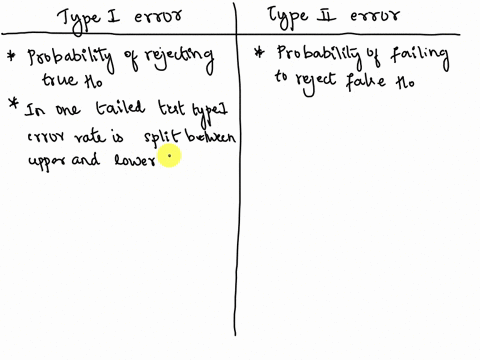 Type I error
* Probability of rejecting
true H₀
* In one tailed test type I
error rate is split between
upper and lower
Type II error
* Probability of failing
to reject false H₀